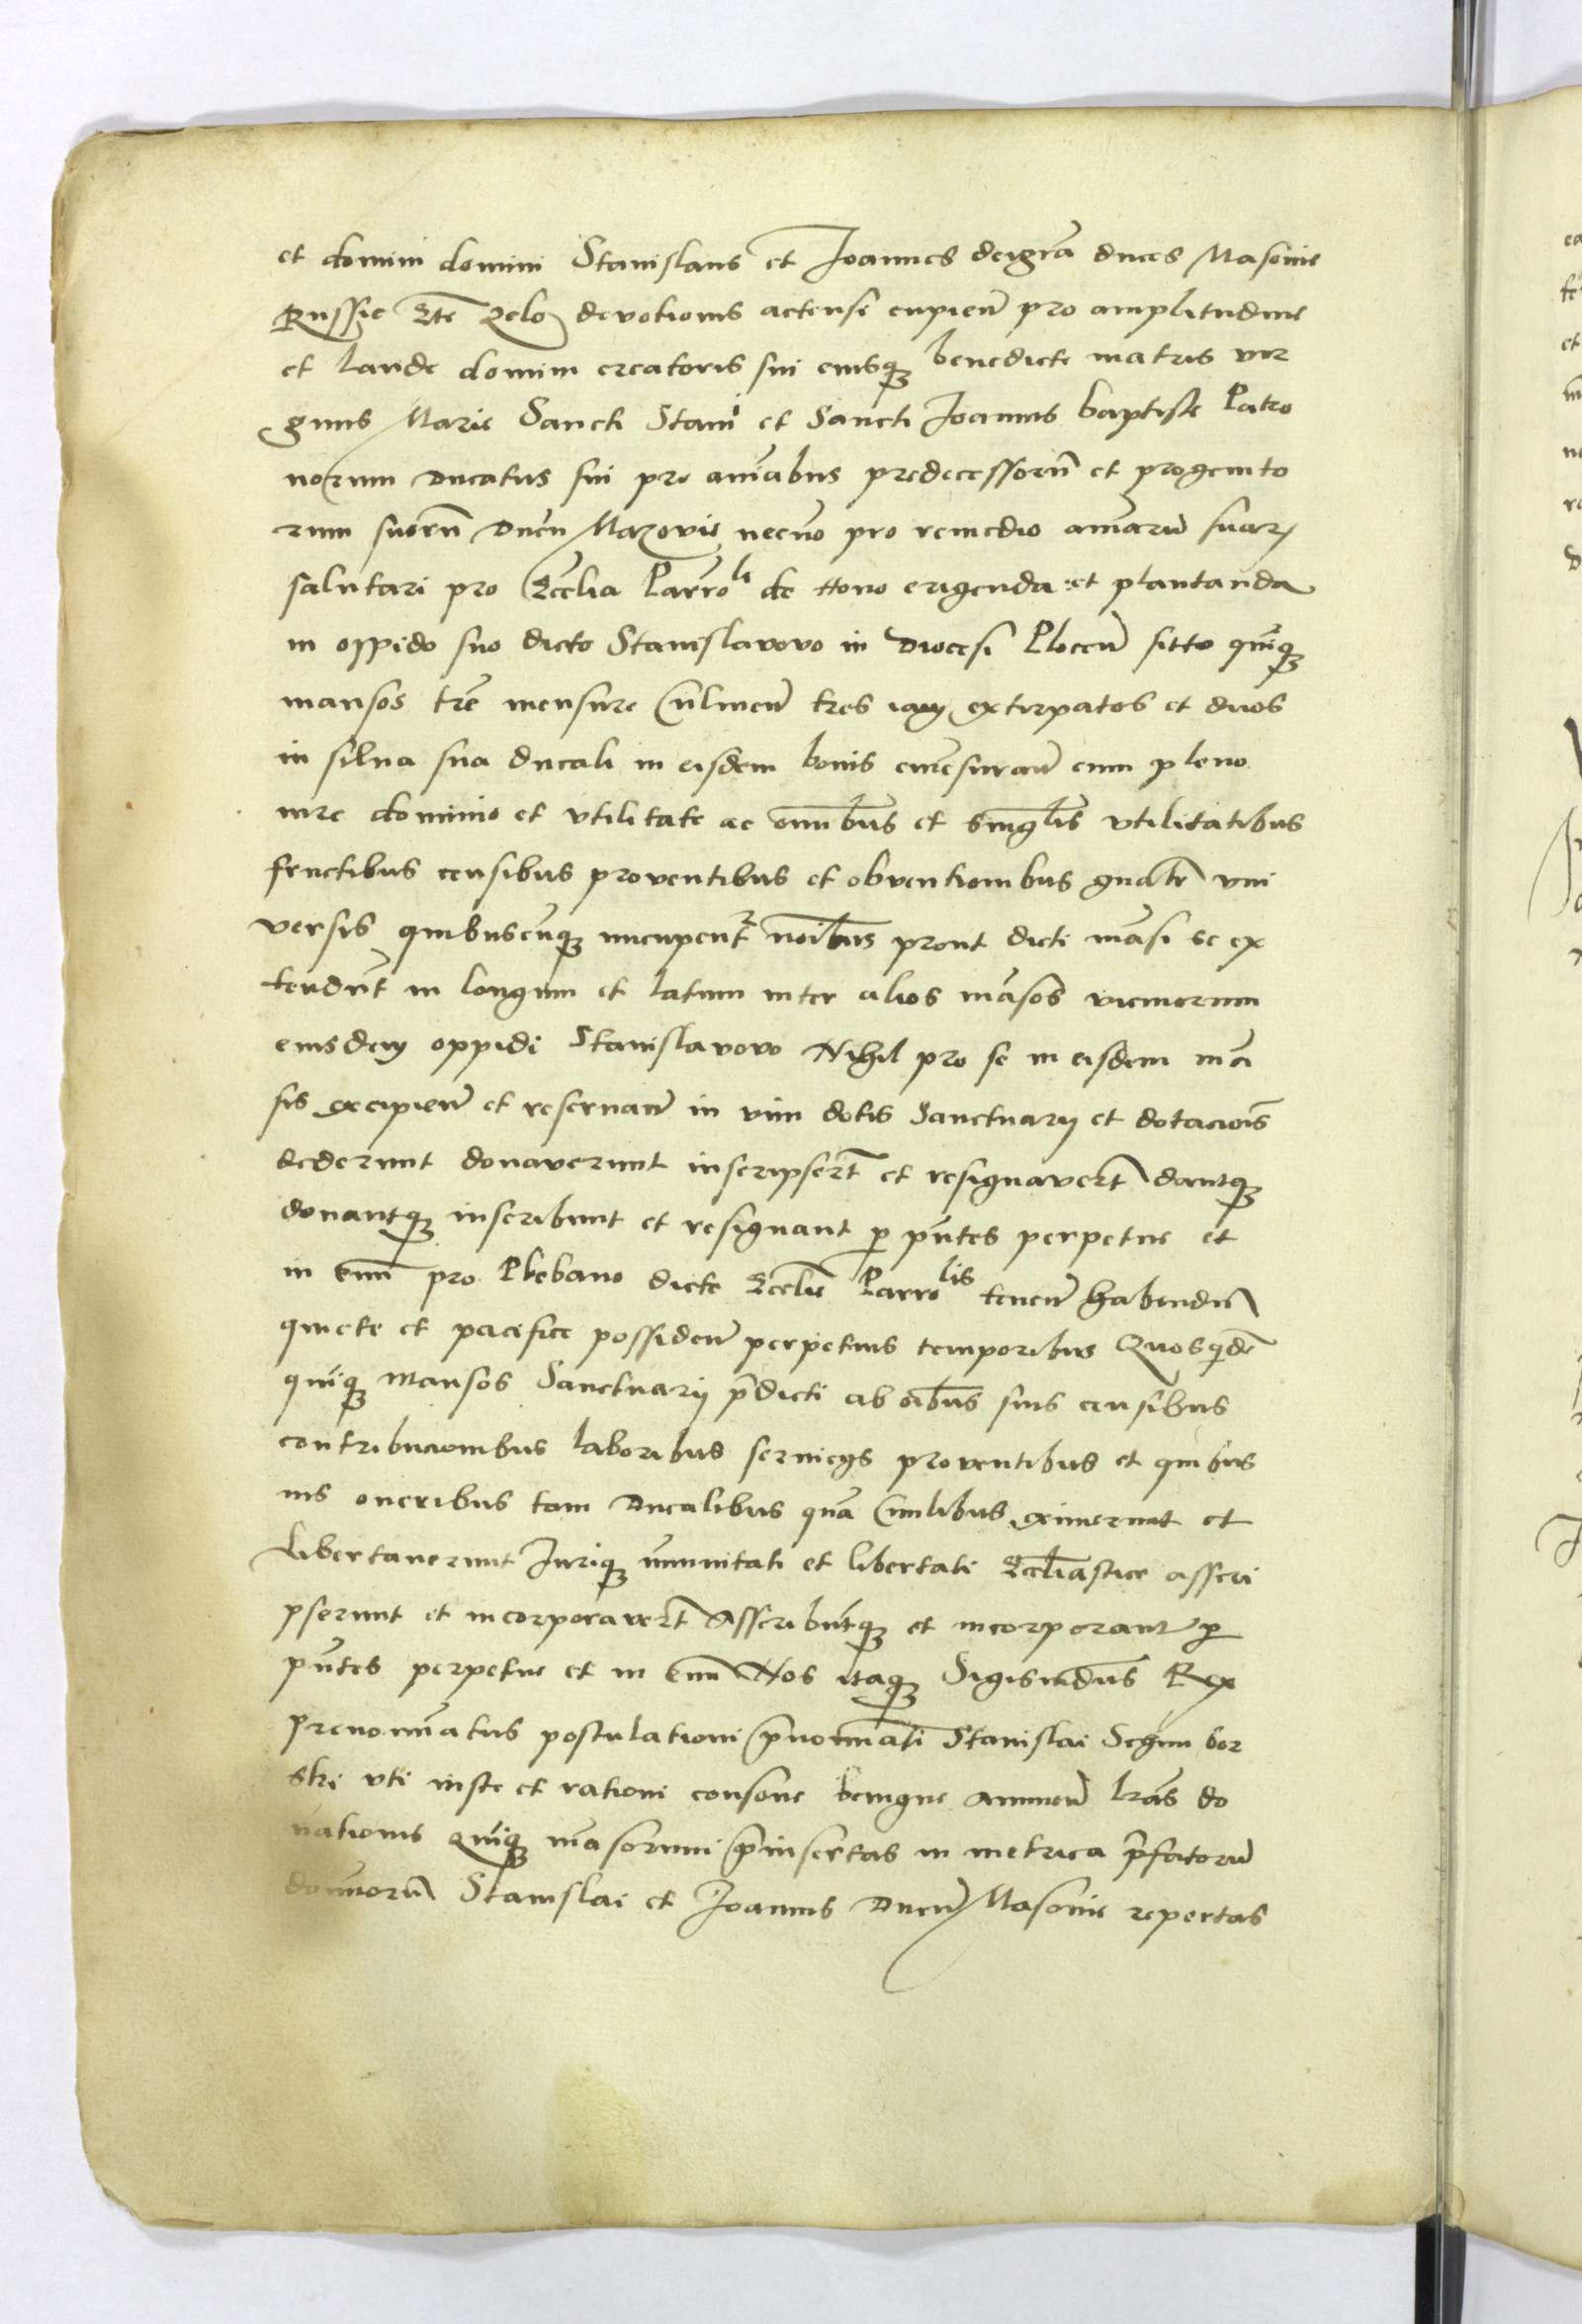 et domini domini Stanislaus et Joannes deigrã duces Masovie
Russie Etc̃ Zelo devotionis actense cupieñ pro amplitudine
et laude domini creatoris sui eiusq3 benedicte matris vir
ginis Marie Sancti Stani et Sancti Joannis baptiste Patro
norum Ducatus sui pro aĩabus predecessorũ et progenito
rum suorũ Ducũ Mazovie necno pro remedio aĩarũ suarꝝ
salutari pro Ecc̃lia Parroli de novo erigenda et plantanda
in oppido suo dicto Stanislavovo in Diocesi Plocen̄ sitto quĩq3
mansos trẽ mensure Culmen̄ tres iam extirpatos et duos
in silua sua ducali in eisdem bonis emẽsuran̄ cum pleno
iure dominio et vtilitate ac omĩbus et singl̃is vtilitatibus
fructibus censibus proventibus et obventionibus gñalr̃ vni
versis quibuscũq3 nuncupent̃ noĩbus prout dicti mãsi se ex
tendũt in longum et latum inter alios mãsos vicinorum
eiusdem oppidi Stanislavovo Nihil pro se in eisdem mã
sis excipien̄ et reservan̄ in vim dotis Sanctuarij et dotaciõis
dederunt donaverunt inscripserũt et resignaverũt dantq3
donantq3 inscribunt et resignant p pñtes perpetue et
in evũ pro Plebano dicte Eccl̃ie Parrolis tenen̄ habendũ
quiete et pacifice possiden̄ perpetuis temporibus Quosqidẽ
quĩq3 mansos Sanctuarij p̃dicti ab oĩbus suis censibus
contribucionibus laboribus servicijs proventibus et quibus
vis oneribus tam Ducalibus quã Civilibus eximerunt et
Libertaverunt Juriq3 vnitati et libertati Eccl̃iastice asscri
pserunt et incorporaverũt Asscribũtq3 et incorporant p
pñtes perpetue et in evũ Nos itaq3 Sigismũdus Rex
prenomĩatus postulationi p̃nomĩati Stanislai Segnu bor
ski vti iuste et rationi consone benigne annuen̄ lr̃as do
nationis quĩq3 mãsorum p̃insertas in metrica p̃fatorũ
domĩorũ Stanislai et Joannis Ducũ Masovie repertas